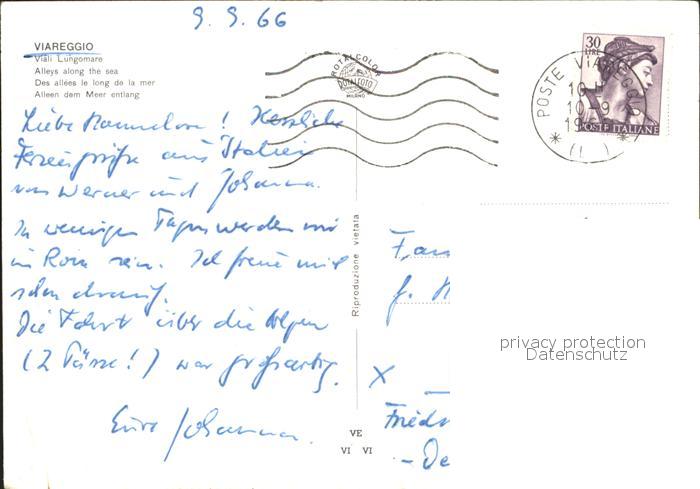 9. 9. 66
VIAREGGIO
Viali Lungomare
Alleys along the sea
Des allées le long de la mer
Alleen dem Meer entlang
ROTALCOLOR
ROTALFOTO
MILANO
30
LIRE
POSTE ITALIANE
POSTE VIAREGGIO
10
10 9
19
(L )
Liebe ! Herzliche
Feriengrüße aus Italien
von Werner und Johanna.
In wenigen Tagen werden wir
in Rom sein. Ich freue mich
schon drauf.
Die Fahrt über die Alpen
(2 Pässe!) war großartig.
Eure Johanna.
Riproduzione vietata
VE
VI VI
Fam
f. H
X
Friedr
- De
privacy protection
Datenschutz